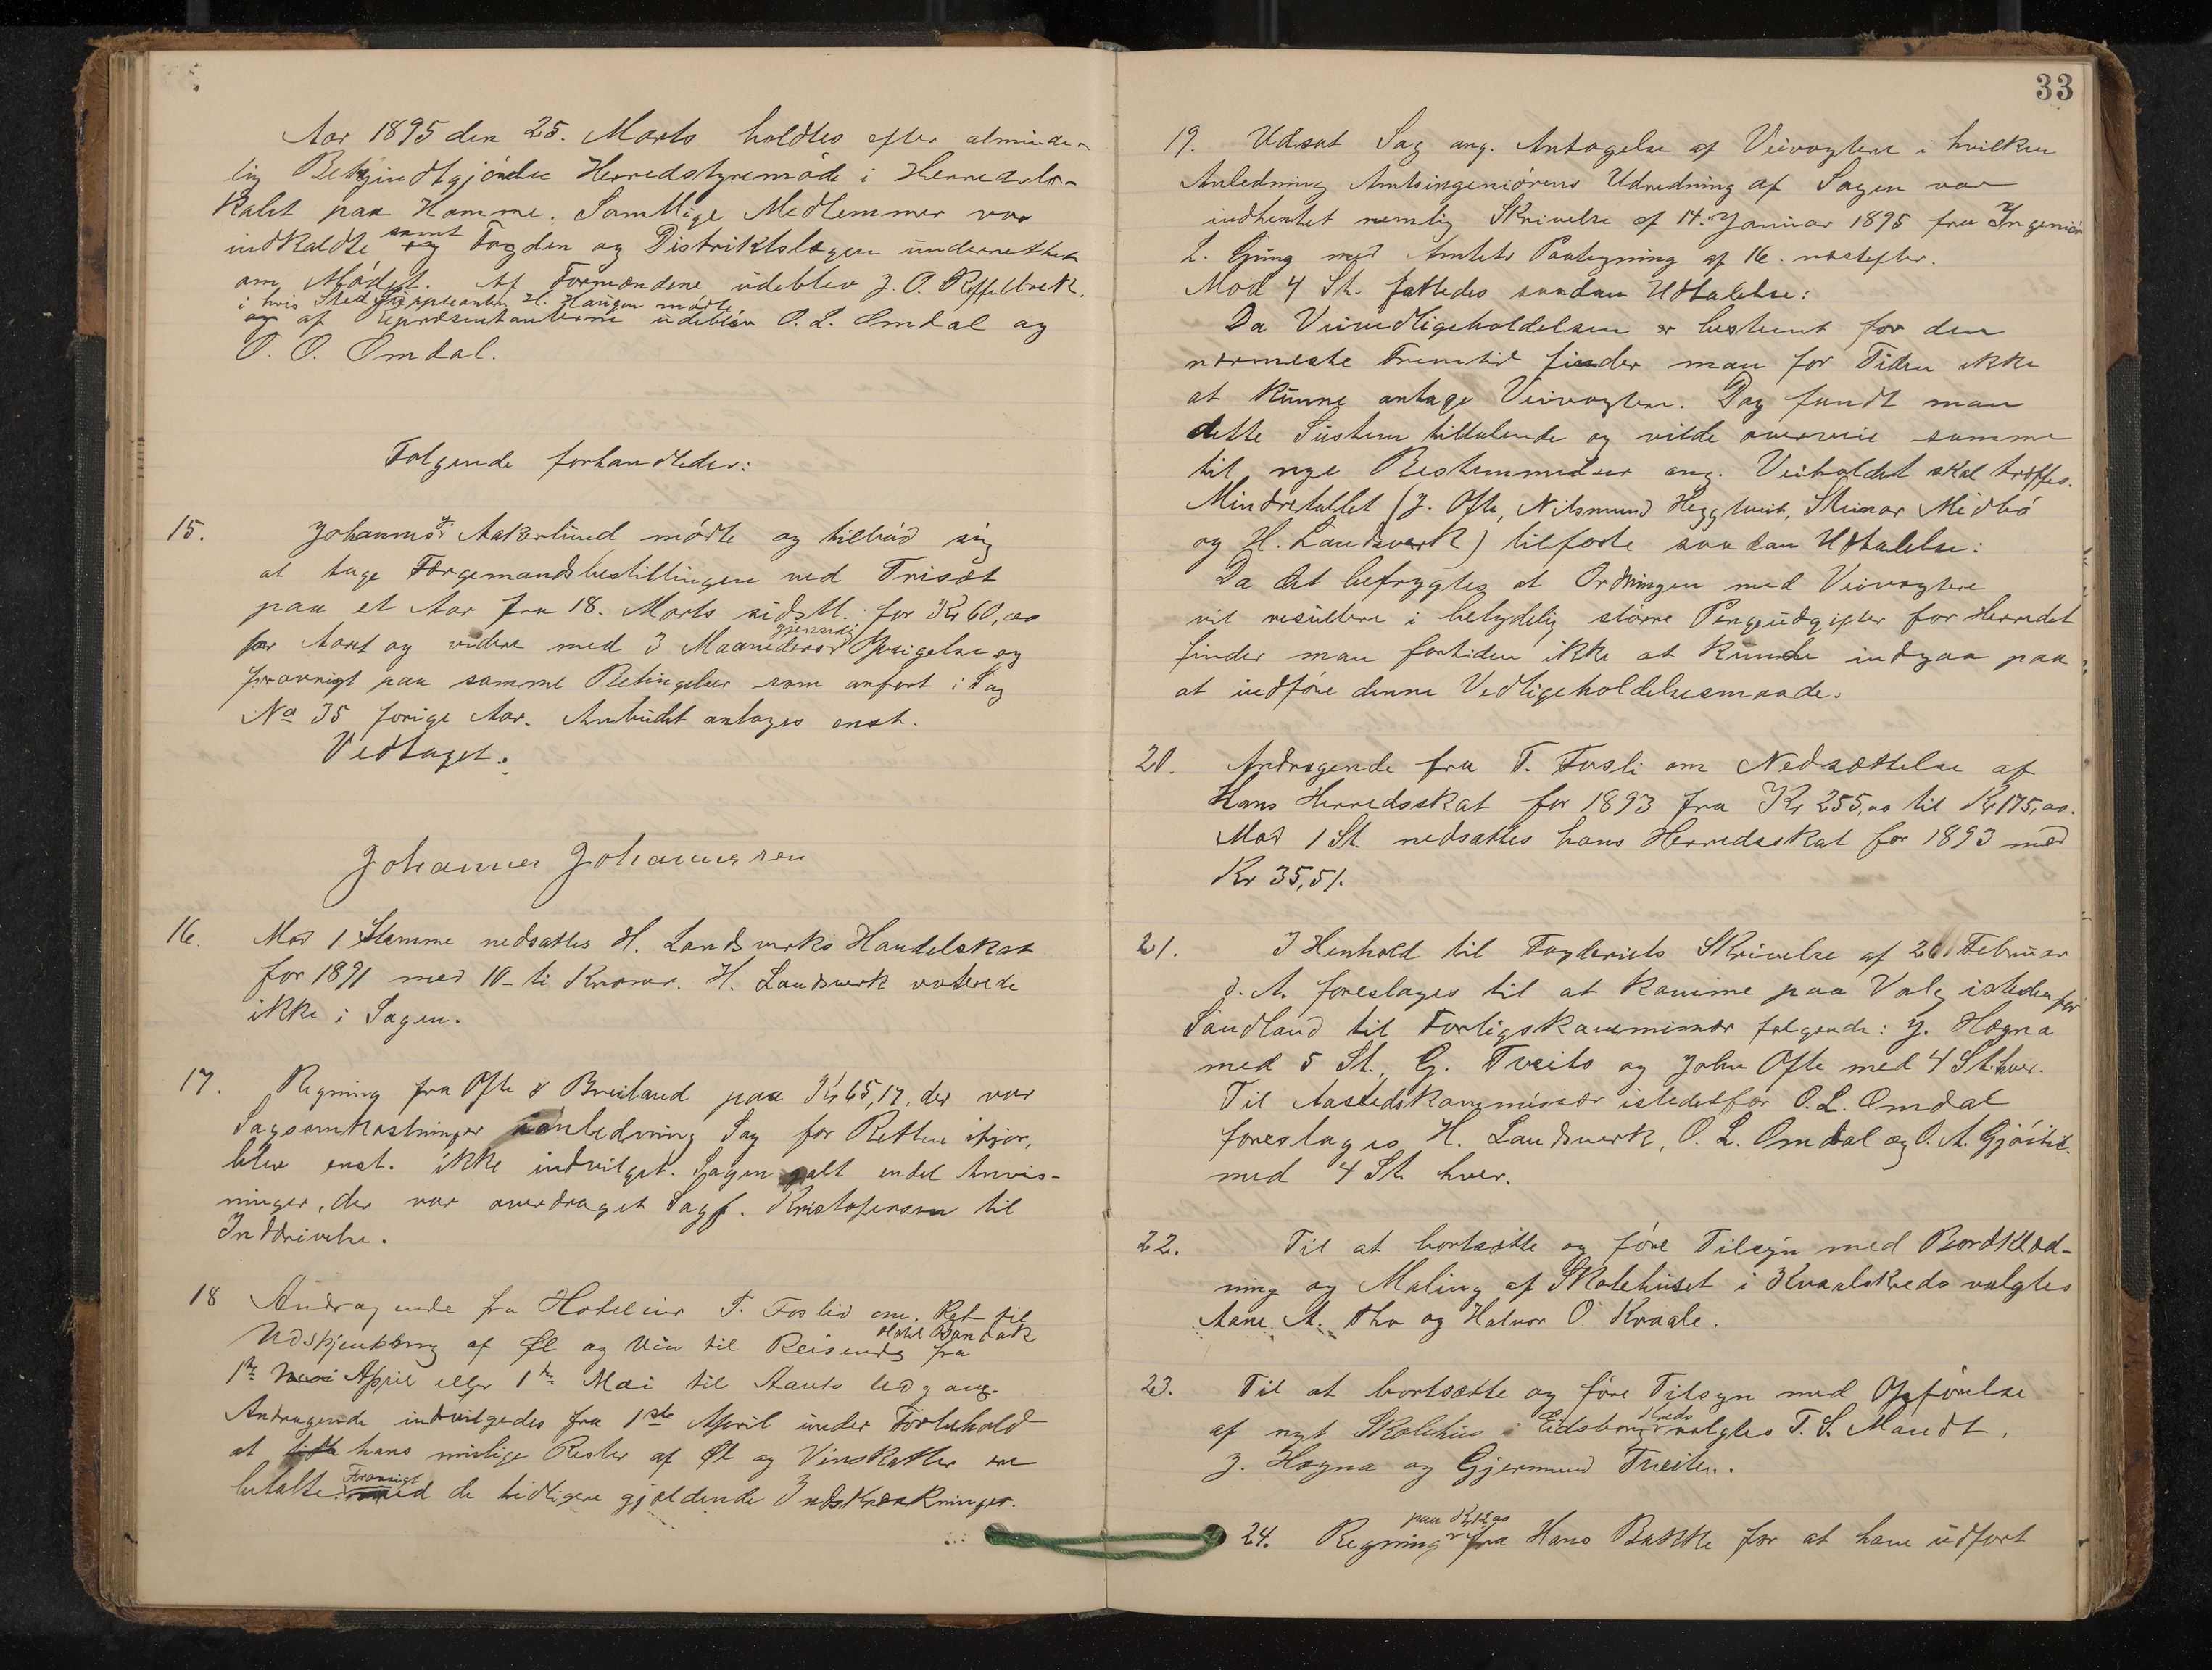 Aar 1895 den 25. Marts holdtes efter alminde-
lig Bekjendtgjørelse Herredstyremøde i Herredslo-
kalet paa Homme. Samtlige Medlemmer var
indkaldte samt Fogden og Distriktslægen underrettet
om Mødet. Af Formændene udeblev J. O.
i hvis Sted Suppleanten H. Haugen mødte
og af Repræsentanterne udeblev O. L. Omdal og
O. O. Omdal.
Følgende forhandledes:
15. Johannes Aakerlund mødte og tilbød sig
at tage Færgemandsbestillingen ved Trisæt
paa et Aar fra 18. Marts sidstl. for Kr 60,00
for Aaret og videre med 3 Maaneders gjensidig Opsigelse og
forøvrigt paa samme Betingelser som anført i Sag
No 35 forige Aar. Anbudet antages enst.
Vedtaget.
Johannes Johannesen
16. Mod 1 Stemme nedsattes H. Landsverks Handelskat
for 1891 med 10 - ti Kroner. H. Landsverk voterede
ikke i Sagen.
17. Regning fra Ofte & Breiland paa Kr 65,17, der var
Sagsomkostninger i anledning Sag for Retten ifjor,
blev enst. ikke indvilget. Sagen galt endel Anvis-
ninger, der var overdraget Sagf. Kristofersen til
Inddrivelse.
18 Andragende fra Hoteleier T. Foslid om Ret til
Udskjenkning af Øl og Vin til Reisende fra Hotel Bandak
1ste April eller 1ste Mai til Aarets Udgang.
Andragende indvilgedes fra 1ste April under Forbehold
at hans mulige Rester af Øl og Vinskatter er
betalte. Forøvrigt med de tidligere gjældende Indskrænkninger.
33
19. Udsat Sag ang. Antagelse af Veivogtere i hvilken
Anledning Amtsingeniørens Udredning af Sagen var
indhentet nemlig Skrivelse af 14. Januar 1895 fra Ingeniør
L. Gung med Amtets Paategning af 16. næstefter.
Mod 4 St. fattedes saadan Udtalelse:
Da Veivedligeholdelsen er bestemt for den
nærmeste Fremtid finder man for Tiden ikke
at kunne antage Veivogtere. Dog fandt man
dette Sustem tiltalende og vilde overveie samme
til nye Bestemmelser ang. Veiholdet skal træffes.
Mindretallet (J. Ofte, Nilsmund Heggtveit, Steinar Midbø
og H. Landsverk) tilførte saadan Udtalelse:
Da det befrygtes at Ordningen med Veivogtere
vil resultere i betydelig større Pengeudgifter for Herredet
finder man fortiden ikke at kunde indgaa paa
at indføre denne Vedligeholdelsesmaade.
20. Andragende fra T. Fosli om Nedsættelse af
Hans Herredsskat for 1893 fra Kr 255,00 til Kr 175,00.
Mod 1 St. nedsattes hans Herredsskat for 1893 med
Kr 35,51.
21. I Henhold til Fogderiets Skrivelse af 26. Februar
d. A. foreslages til at komme paa Valg istedenfor
Sandland til Forligskommissær følgende: J. Høgna
med 5 St., G. Tveito og John Ofte med 4 St. hver.
Til Aastedskommissær istedetfor O. L. Omdal
foreslages H. Landsverk, O. L. Omdal og O. A. Gjøitil.
med 4 St. hver.
22. Til at bortsætte og føre Tilsyn med Bordklæd-
ning og Maling af Skolehuset i Kvaalskreds valgtes
Aane A. Tho og Halvor O. Kvaale.
23. Til at bortsætte og føre Tilsyn med Opførelse
af nyt Skolehus i Eidsborg Kreds valgtes T. S. Mandt,
J. Høgna og Gjermund Tveiten.
24. Regning paa Kr 12,00 fra Hans Bakke for at have udført